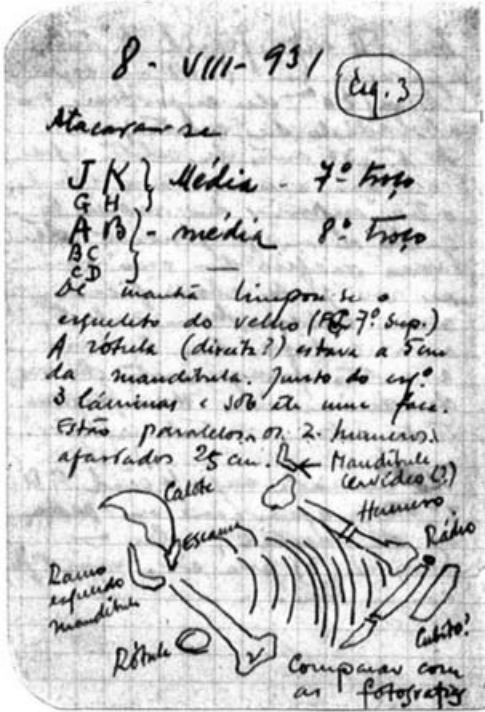 8 - VIII - 931
Esq. 3
Atacaram se
J K } Média - 7º troço
G H
A B } - média 8º troço
B C
C D
De manhã limpou-se o
esqueleto do velho (7º Sup.)
A rótula (direita?) estava a 5 cm
da mandíbula. Junto do esqº
3 lâminas e sob ele uma faca.
Estão paralelos os 2 húmeros
afastados 25 cm.
Mandíbula
cervídeo (?)
Calote
Húmero
Escama
Rádio
Ramo
esquerdo
mandíbula
Rótula
Cúbito?
Comparar com
as fotografias